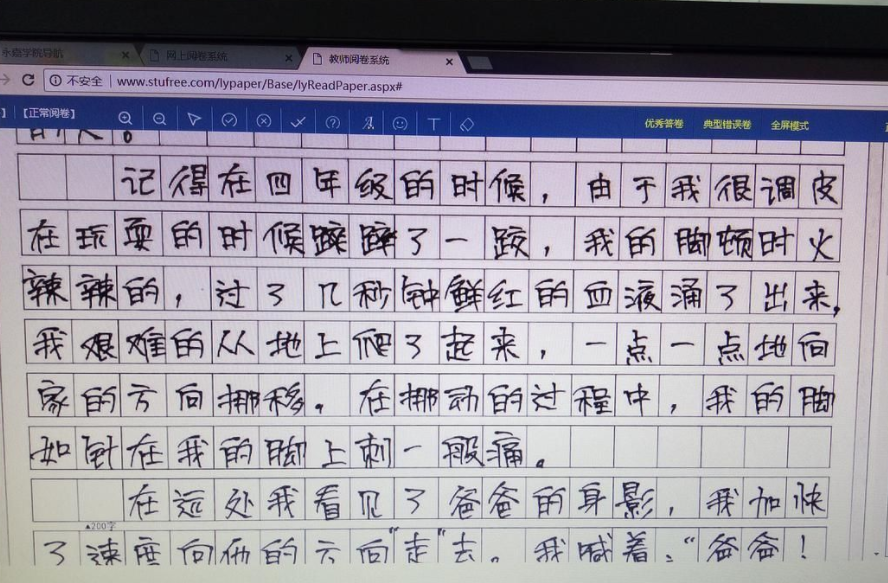 永嘉学院导航
网上阅卷系统
教师阅卷系统
不安全 www.stufree.com/lypaper/Base/lyReadPaper.aspx#
【正常阅卷】
优秀答卷 典型错误卷 全屏模式
的人。
记得在四年级的时候，由于我很调皮
在玩耍的时候蹂蹂了一跤，我的脚顿时火
辣辣的，过了几秒钟鲜红的血液涌了出来，
我艰难的从地上爬了起来，一点一点地向
家的方向挪移。在挪动的过程中，我的脚
如针在我的脚上刺一般痛。
在远处我看见了爸爸的身影，我加快
▲200字
了速度向他的方向"走"去。我喊着："爸爸！